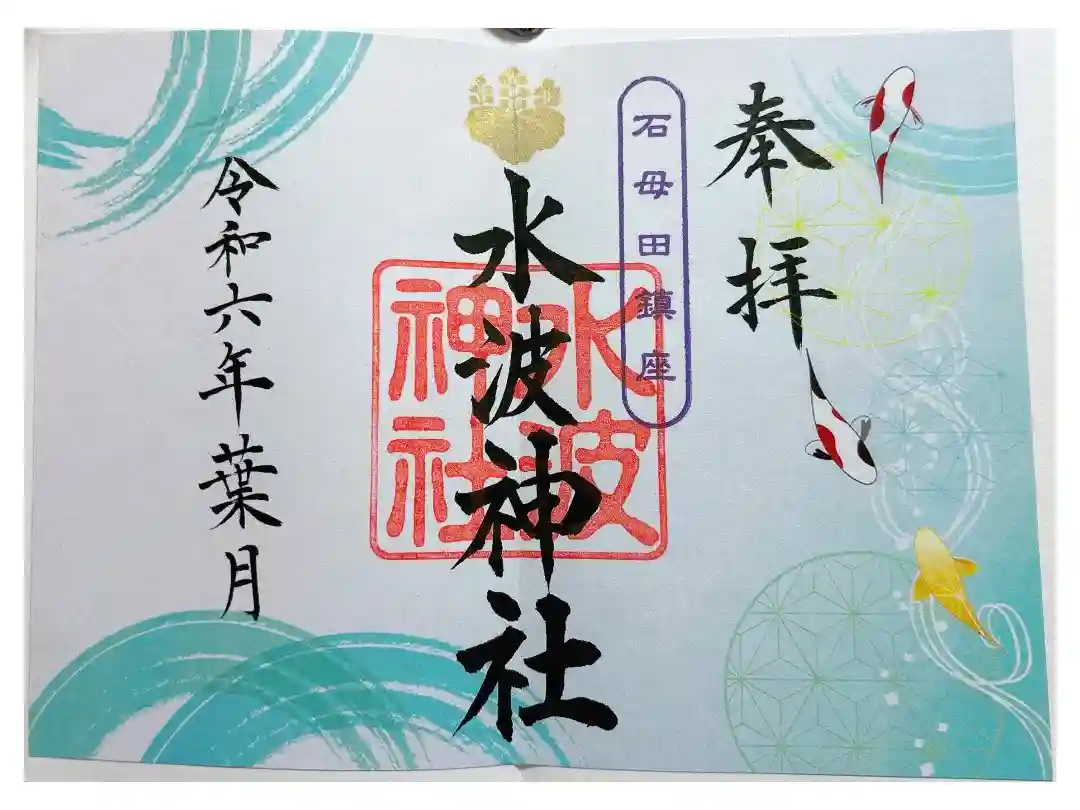 奉拝
石母田鎮座
水波神社
水波神社
令和六年葉月